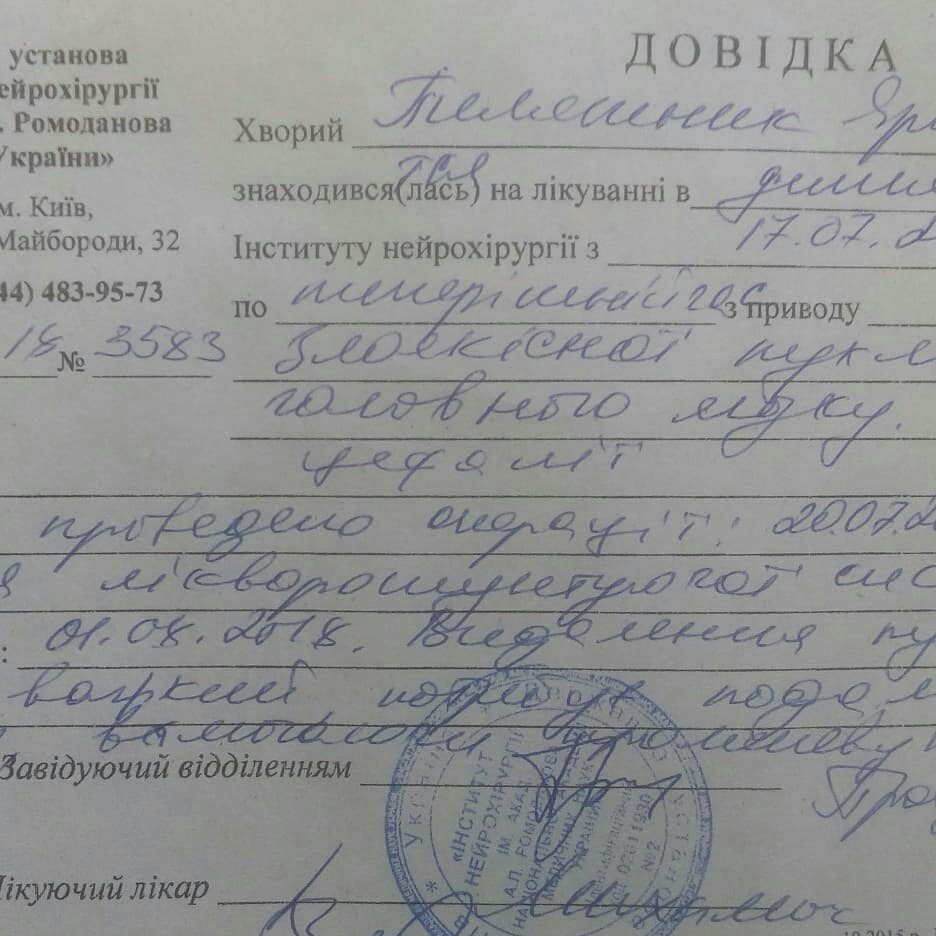 установа
ейрохірургії
. Ромоданова
України»
м. Київ,
Майбороди, 32
44) 483-95-73
18 № 3583
ДОВІДКА
Хворий
знаходився(лась) на лікуванні в
Інституту нейрохірургії з 17.07.2
по теперішній час з приводу
злоякісної пухл
головного мозку.
цефалії
проведено операції: 20.07.2
лікворошунтуючої сис
: 01.08.2018. Видалення пу
важкий, потребує
Завідуючий відділенням
Лікуючий лікар
«ІНСТИТУТ
НЕЙРОХІРУРГІЇ
ІМ. АКАД.
А.П. РОМОДАНОВА
НАЦІОНАЛЬНОЇ АКАДЕМІЇ
МЕДИЧНИХ НАУК
УКРАЇНИ»
№2